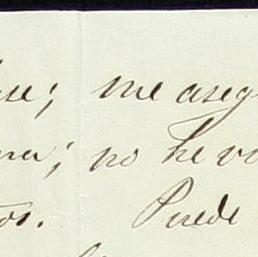 me aseg
no he vo
tos. Puede